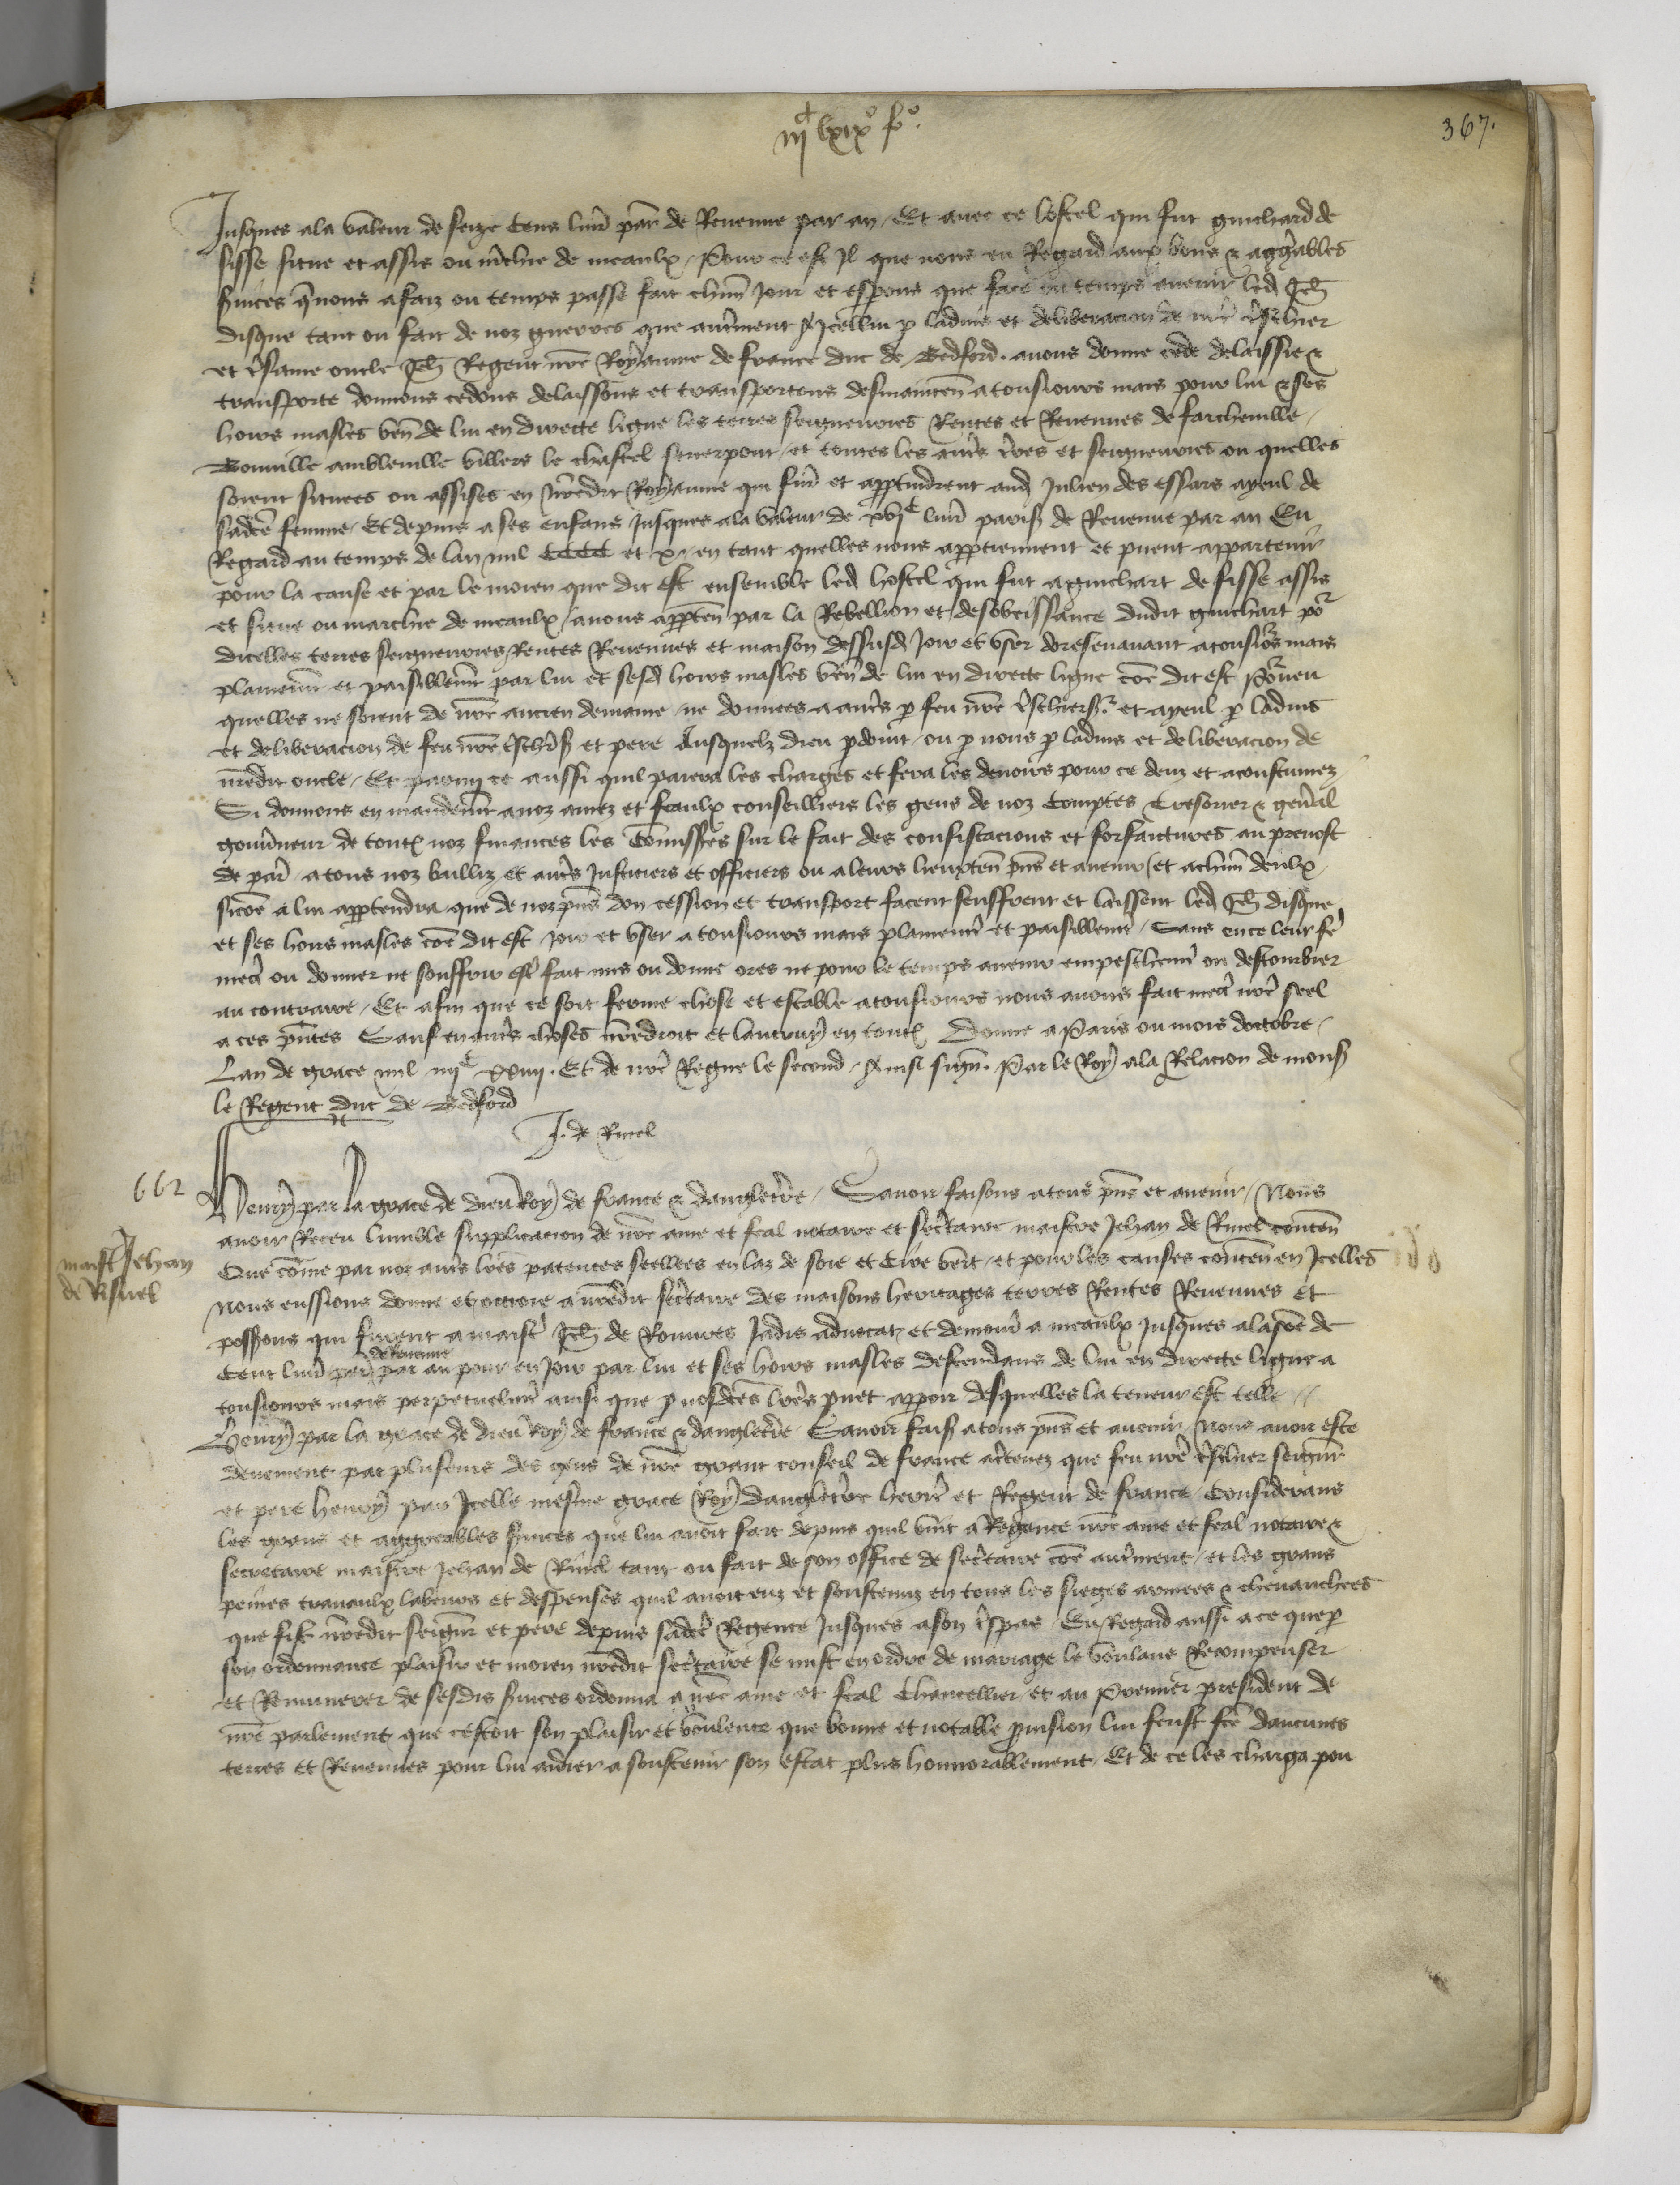 iijc lxix° f°.
367.
Jusques ala valeur de seize Cens livr par de Revenue par an Et avec ce lostel qui fut guichard de
sisse situe et assis ou mrchie de meaulx Pour ce est Jl que nous eu Regard aux bons & aggreables
svices q nous a faiz ou temps passe fait chun Jour et esperons que face ou temps avenir led Jeh
disque tant ou fait de noz guerres que autrment A Jcellui p ladvis et deliberacion de nre treschier
et tresame oncle Jeh Regent nre Royaume de france duc de Bedford avons donne cede delaissie &
transporte donnons cedons delaissons et transportons desmainten atousiours mais pour lui & ses
hoirs masles ven de lui en directe ligne les terres seigneuries Rentes et Revenues de farcheville
Bonville ambleville villers le chastel senerpont et toutes les autrs trres et seigneuries ou quelles
soient situees ou assises en nredit Royaume qui furent et appartindrent aud Julien des essars ayeul de
sadce femme Et depuis a ses enfans Jusques ala valeur de xvjc livr paris de Revenue par an Eu
Regard au temps de lan mil CCCC et x en tant quelles nous appartiennent et puent appartenir
pour la cause et par le moien que dit est ensemble led hostel qui fut a guichart de sisse assis
et situe ou marchie de meaulx anous apparten par la Rebellion et desobeissance dudit guichart por
dicelles terres seigneuries Rentes Revenues et maison dessusd Joir et user doresenavant atousiors mais
plainemt et paisiblemt par lui et sesd hoirs masles ven de lui en directe ligne coe dit est Pourveu
quelles ne soient de nre ancien demaine ne donnees a autrs p feu nre treschier sr et ayeul p ladvis
et deliberacion de feu nre treschr sr et pere Ausquelz dieu pdoint ou p nous p ladvis et deliberacion de
nredit oncle Et parmi ce aussi quil paiera les charges et fera les devoirs pour ce deuz et acoustumez
Si donnons en mandemt anoz amez et feaulx conseilliers les gens de noz Comptes Tresorier & genral
gouvneur de toutes noz finances les Commisses sur le fait des confiscacions et forfaictures au prevost
de par atous noz bailliz et autrs Justiciers et officiers ou aleurs lieuxten pns et avenir et achun deulx
sicoe a lui appartendra que de noz pns don cession et transport facent seuffrent et laissent led Jeh disque
et ses hoirs masles coe dit est Joir et user atousiours mais plainemt et paisiblemt Sans ence leur fe
mectre ou donner ne souffrir estre fait mis ou donne ores ne pour le temps avenir empeschemt ou destourbier
au contraire Et afin que ce soit ferme chose et estable atousiours nous avons fait mectre nre seel
a ces pntes Sauf en autrs choses nredroit et lautruy en toutes Donne a Paris ou mois doctobre
Lan de grace mil iiijc xxiiij Et de nre Regne le second Ainsi sign Par le Roy ala Relacion de mons
le Regent duc de Bedford
J. de Rinel
662
maistr Jehan
de Risnel
Henry par la grace de dieu Roy de france & dangletre Savoir faisons atous pns et avenir Nous
avoir Receu lumble supplicacion de nre ame et feal notaire et secretaire maistre Jehan de Rinel conten
Que comme par noz autrs lres patentes seellees en laz de soie et Cire vert et pour les causes conten en Jcelles
nous eussions donne et octroie a nredit secretaire des maisons heritages terres Rentes Revenues et
possessions qui furent a maistr Jeh de Romires Jadis advocat et demour a meaulx Jusques ala soe de
Cent livr par de Revenue par an pour en Joir par lui et ses hoirs masles descendans de lui en directe ligne a
tousiours mais perpetuelmt ainsi que p nosdces lres puet apparoir desquelles la teneur est telle
Henry par la grace de dieu Roy de france & dangletre Savoir fais atous pns et avenir Nous avoir este
deuement par plusieurs des gens de nre grant conseil de france acrtenez que feu nre treschier seignr
et pere henry par Jcelle mesme grace Roy dangletrre hertr et Regent de france Considerans
les grans et aggreables svices que lui avoit fait depuis quil vint a Regence nre ame et feal notaire &
secretaire maistre Jehan de Rinel tant ou fait de son office de secretaire coe autrment et les grans
peines travaulx labeurs et despenses quil avoit euz et soustenuz en tous les sieges armees & chevauchees
que fist nredit seignr et pere depuis sadce Regence Jusques ason trespas Eu Regard aussi ace que p
son ordonnance plaisir et moien nredit secretaire se mist en ordre de mariage le voulans Recompenser
et Remunerer de sesdis svices ordonna a nre ame et feal Chancellier et au Premier president de
nre parlement que cestoit son plaisir et voulente que bonne et notable provision lui feust fce daucunes
terres et Revenues pour lui aidier a soustenir son estat plus honnorablement Et de ce les charga pou